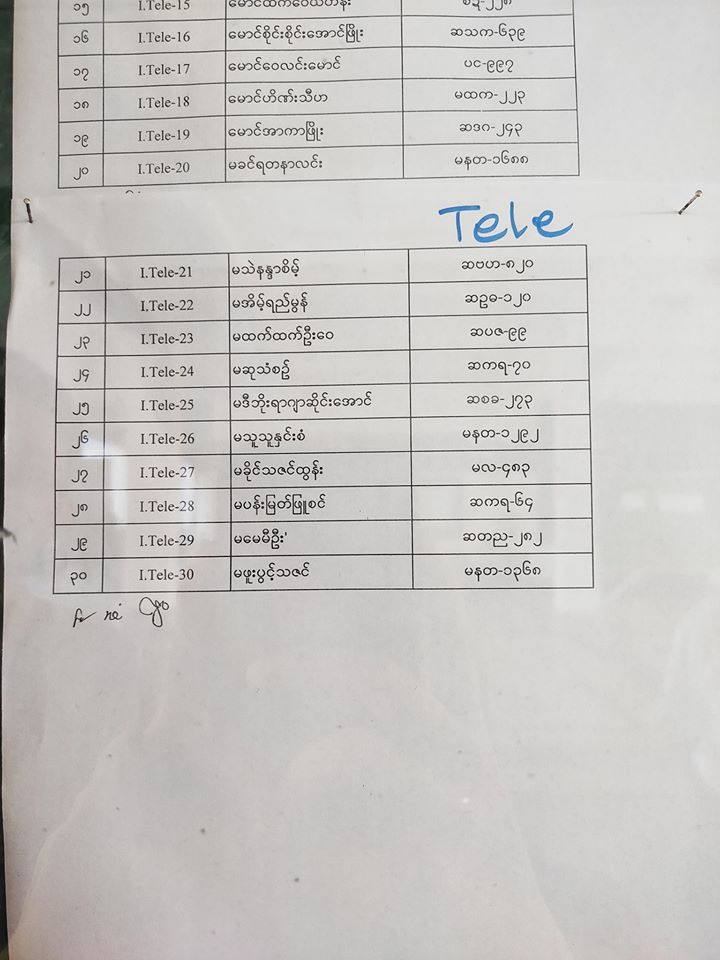 ၁၅ I.Tele-15
၁၆ I.Tele-16 မောင်စိုင်းစိုင်းအောင်ဖြိုး ဆသက-၆၃၉
၁၇ I.Tele-17 မောင်ဝေလင်းမောင် ပင-၉၉၇
၁၈ I.Tele-18 မောင်ဟိဏ်းသီဟ မထက-၂၂၃
၁၉ I.Tele-19 မောင်အာကာဖြိုး ဆဒဂ-၂၄၃
၂၀ I.Tele-20 မခင်ရတနာလင်း မနတ-၁၆၈၈
Tele
၂၁ I.Tele-21 မသဲနန္ဒာစိမ့် ဆဗဟ-၈၂၀
၂၂ I.Tele-22 မအိမ့်ရည်မွန် ဆဥဓ-၁၂၀
၂၃ I.Tele-23 မထက်ထက်ဦးဝေ ဆပဇ-၉၉
၂၄ I.Tele-24 မဆုသံစဉ် ဆကရ-၇၀
၂၅ I.Tele-25 မဒီဘိုးရာဂျာဆိုင်းအောင် ဆစခ-၂၇၃
၂၆ I.Tele-26 မသူသူနှင်းစံ မနတ-၁၂၉၂
၂၇ I.Tele-27 မခိုင်သဇင်ထွန်း မလ-၄၈၃
၂၈ I.Tele-28 မပန်းမြတ်ဖြူစင် ဆကရ-၆၄
၂၉ I.Tele-29 မမေမီဦး' ဆတည-၂၈၂
၃၀ I.Tele-30 မဖူးပွင့်သဇင် မနတ-၁၃၆၈